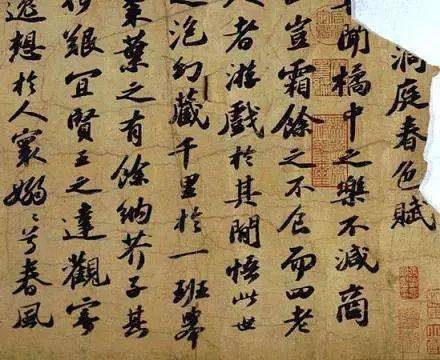 洞庭春色賦
聞橘中之樂不減商
豈霜餘之不食而四老
人者游戲於其間悟此世
之泡幻藏千里於一班舉
棗葉之有餘納芥子其
何艱宜賢王之達觀寄
逸想於人寰嫋〻兮春風